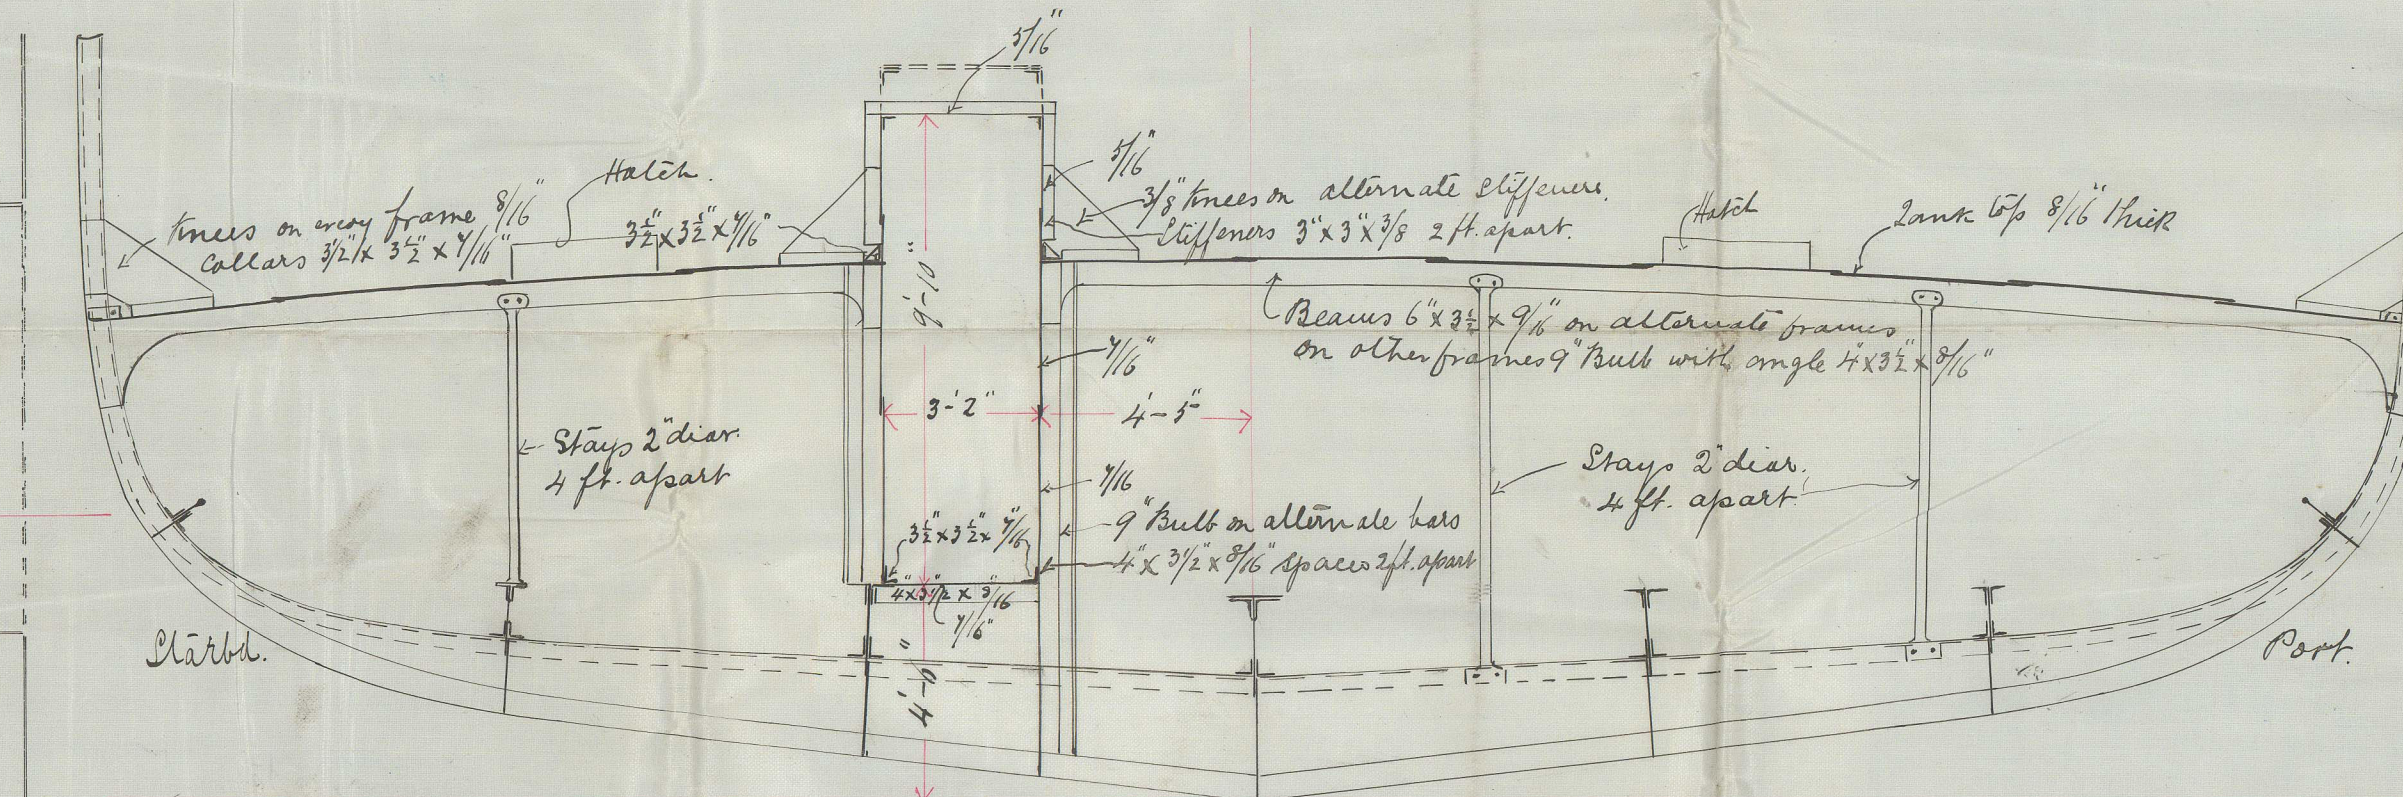 5/16"
Hatch.
knees on every frame 8/16"
Collars 3½" x 3½" x 7/16"
3½" x 3½" x 7/16"
5/16"
3/8" knees on alternate stiffeners.
Stiffeners 3" x 3" x 3/8 2 ft. apart.
Hatch
Tank top 8/16" thick
9'-10"
Beams 6" x 3½ x 9/16" on alternate frames
on other frames 9" Bulb with angle 4" x 3½" x 8/16"
7/16"
3'-2"
4'-5"
Stays 2" diar.
4 ft. apart
7/16
Stays 2" diar.
4 ft. apart.
3½" x 3½" x 7/16"
9" Bulb on alternate bars
4" x 3½" x 8/16" spaces 2 ft. apart
4" x 3½ x 8/16
7/16"
4'-6"
Starbd.
Port.